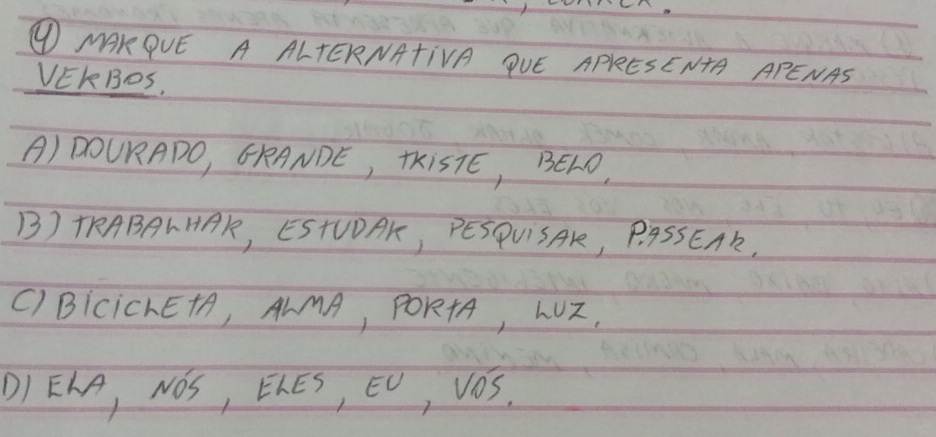 , CORRER.
④ MARQUE A ALTERNATIVA QUE APRESENTA APENAS
VERBOS.
A) DOURADO, GRANDE, TRISTE, BELO.
B) TRABALHAR, ESTUDAR, PESQUISAR, PASSEAR.
C) BICICLETA, ALMA, PORTA, LUZ.
D) ELA, NÓS, ELES, EU, VÓS.